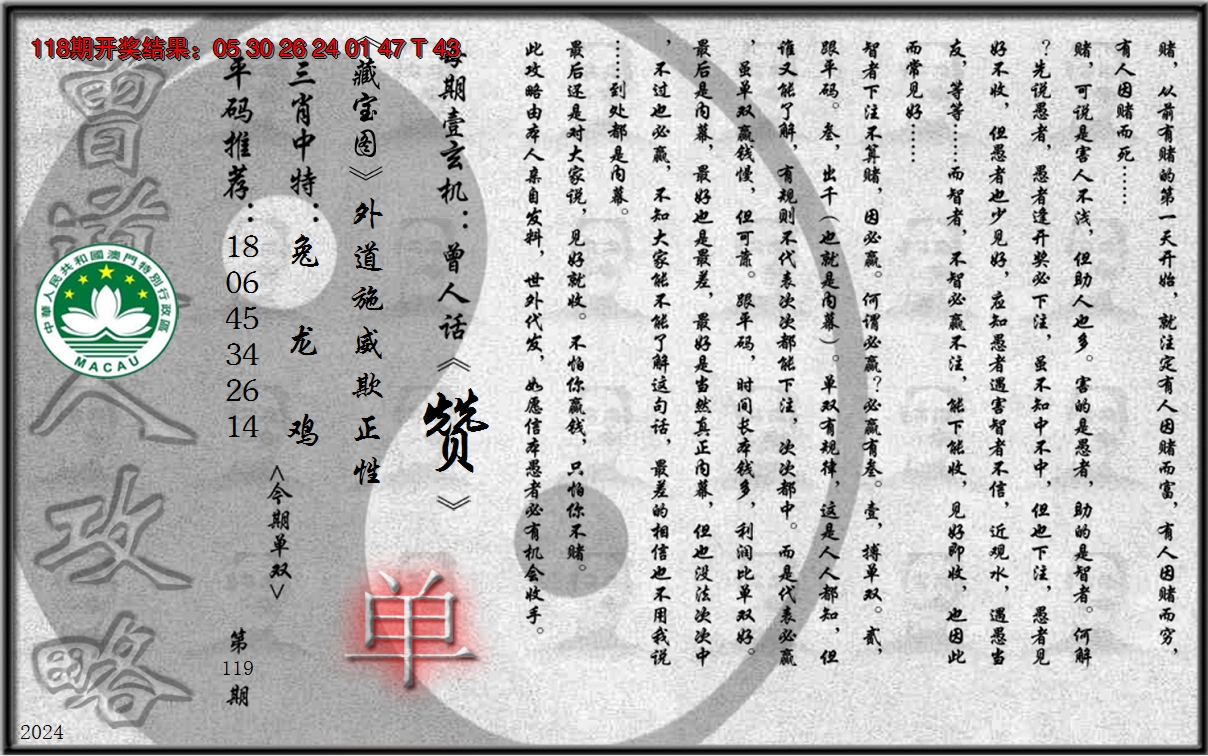 118期开奖结果：05 30 26 24 01 47 T 43
赌，从前有赌的第一天开始，就注定有人因赌而富，有人因赌而穷，
有人因赌而死……
赌，可说是害人不浅，但助人也多。害的是愚者，助的是智者。何解
？先说愚者，愚者逢开奖必下注，虽不知中不中，但也下注，愚者见
好不收，但愚者也少见好，应知愚者遇害智者不信，近观水，遇愚当
友，等等……而智者，不智必赢不注，能下能收，见好即收，也因此
而常见好……
智者下注不算赌，因必赢。何谓必赢？必赢有叁。壹，搏单双。贰，
跟平码。叁，出千（也就是内幕）。单双有规律，这是人人都知，但
谁又能了解，有规则不代表次次都能下注，次次都中。而是代表必赢
，虽单双赢钱慢，但可靠。跟平码，时间长本钱多，利润比单双好。
最后是内幕，最好也是最差，最好是当然真正内幕，但也没法次次中
，不过也必赢，不知大家能不能了解这句话，最差的相信也不用我说
……到处都是内幕。
最后还是对大家说，见好就收。不怕你赢钱，只怕你不赌。
此攻略由本人亲自发料，世外代发，如愿信本愚者必有机会收手。
每期壹玄机：曾人话《赞》
《藏宝图》外道施威欺正性
单
三肖中特：兔 龙 鸡
<今期单双>
平码推荐：18 06 45 34 26 14
第119期
曾道人攻略
中華人民共和國澳門特別行政區
MACAU
2024